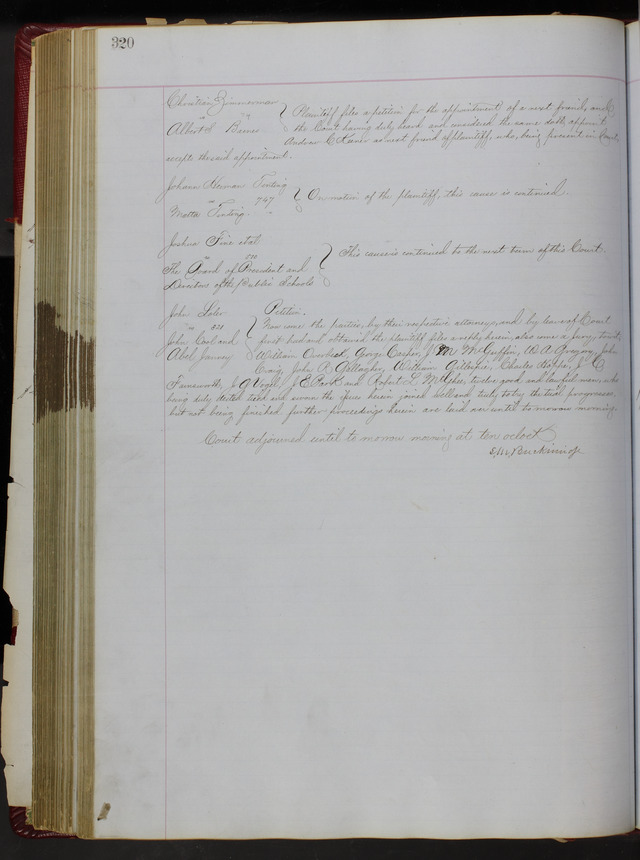 320
Christian Zimmerman
vs
Albert Barnes
Plaintiff files a petition for the appointment of a next friend, and
the Court having duly heard and considered the same doth appoint
Andrew as next friend of plaintiff, who, being present in Court,
accepts the said appointment.
Johann Herman Tenting
vs 747
Matta Tenting.
On motion of the plaintiff, this cause is continued.
Joshua Fine et al
vs
The Board of President and
Directors of the Public Schools
This cause is continued to the next term of this Court.
John Loler
vs 821
John Cavil and
Abel Janney
Petition.
Now come the parties, by their respective attorneys, and by leave of Court
first had and obtained the plaintiff files a reply herein, also come a jury, to wit,
William George Casper, J M McGuffin, W A Gregory, John
Craig, John B Gallagher, William Gillespie, Charles J C
Farnsworth, J G Vogel, J E and Robert L twelve good and lawful men, who
being duly elected tried and sworn the issue herein joined well and truly to try the trial progresses,
but not being finished further proceedings herein are laid over until to morrow morning.
Court adjourned until to morrow morning at ten oclock